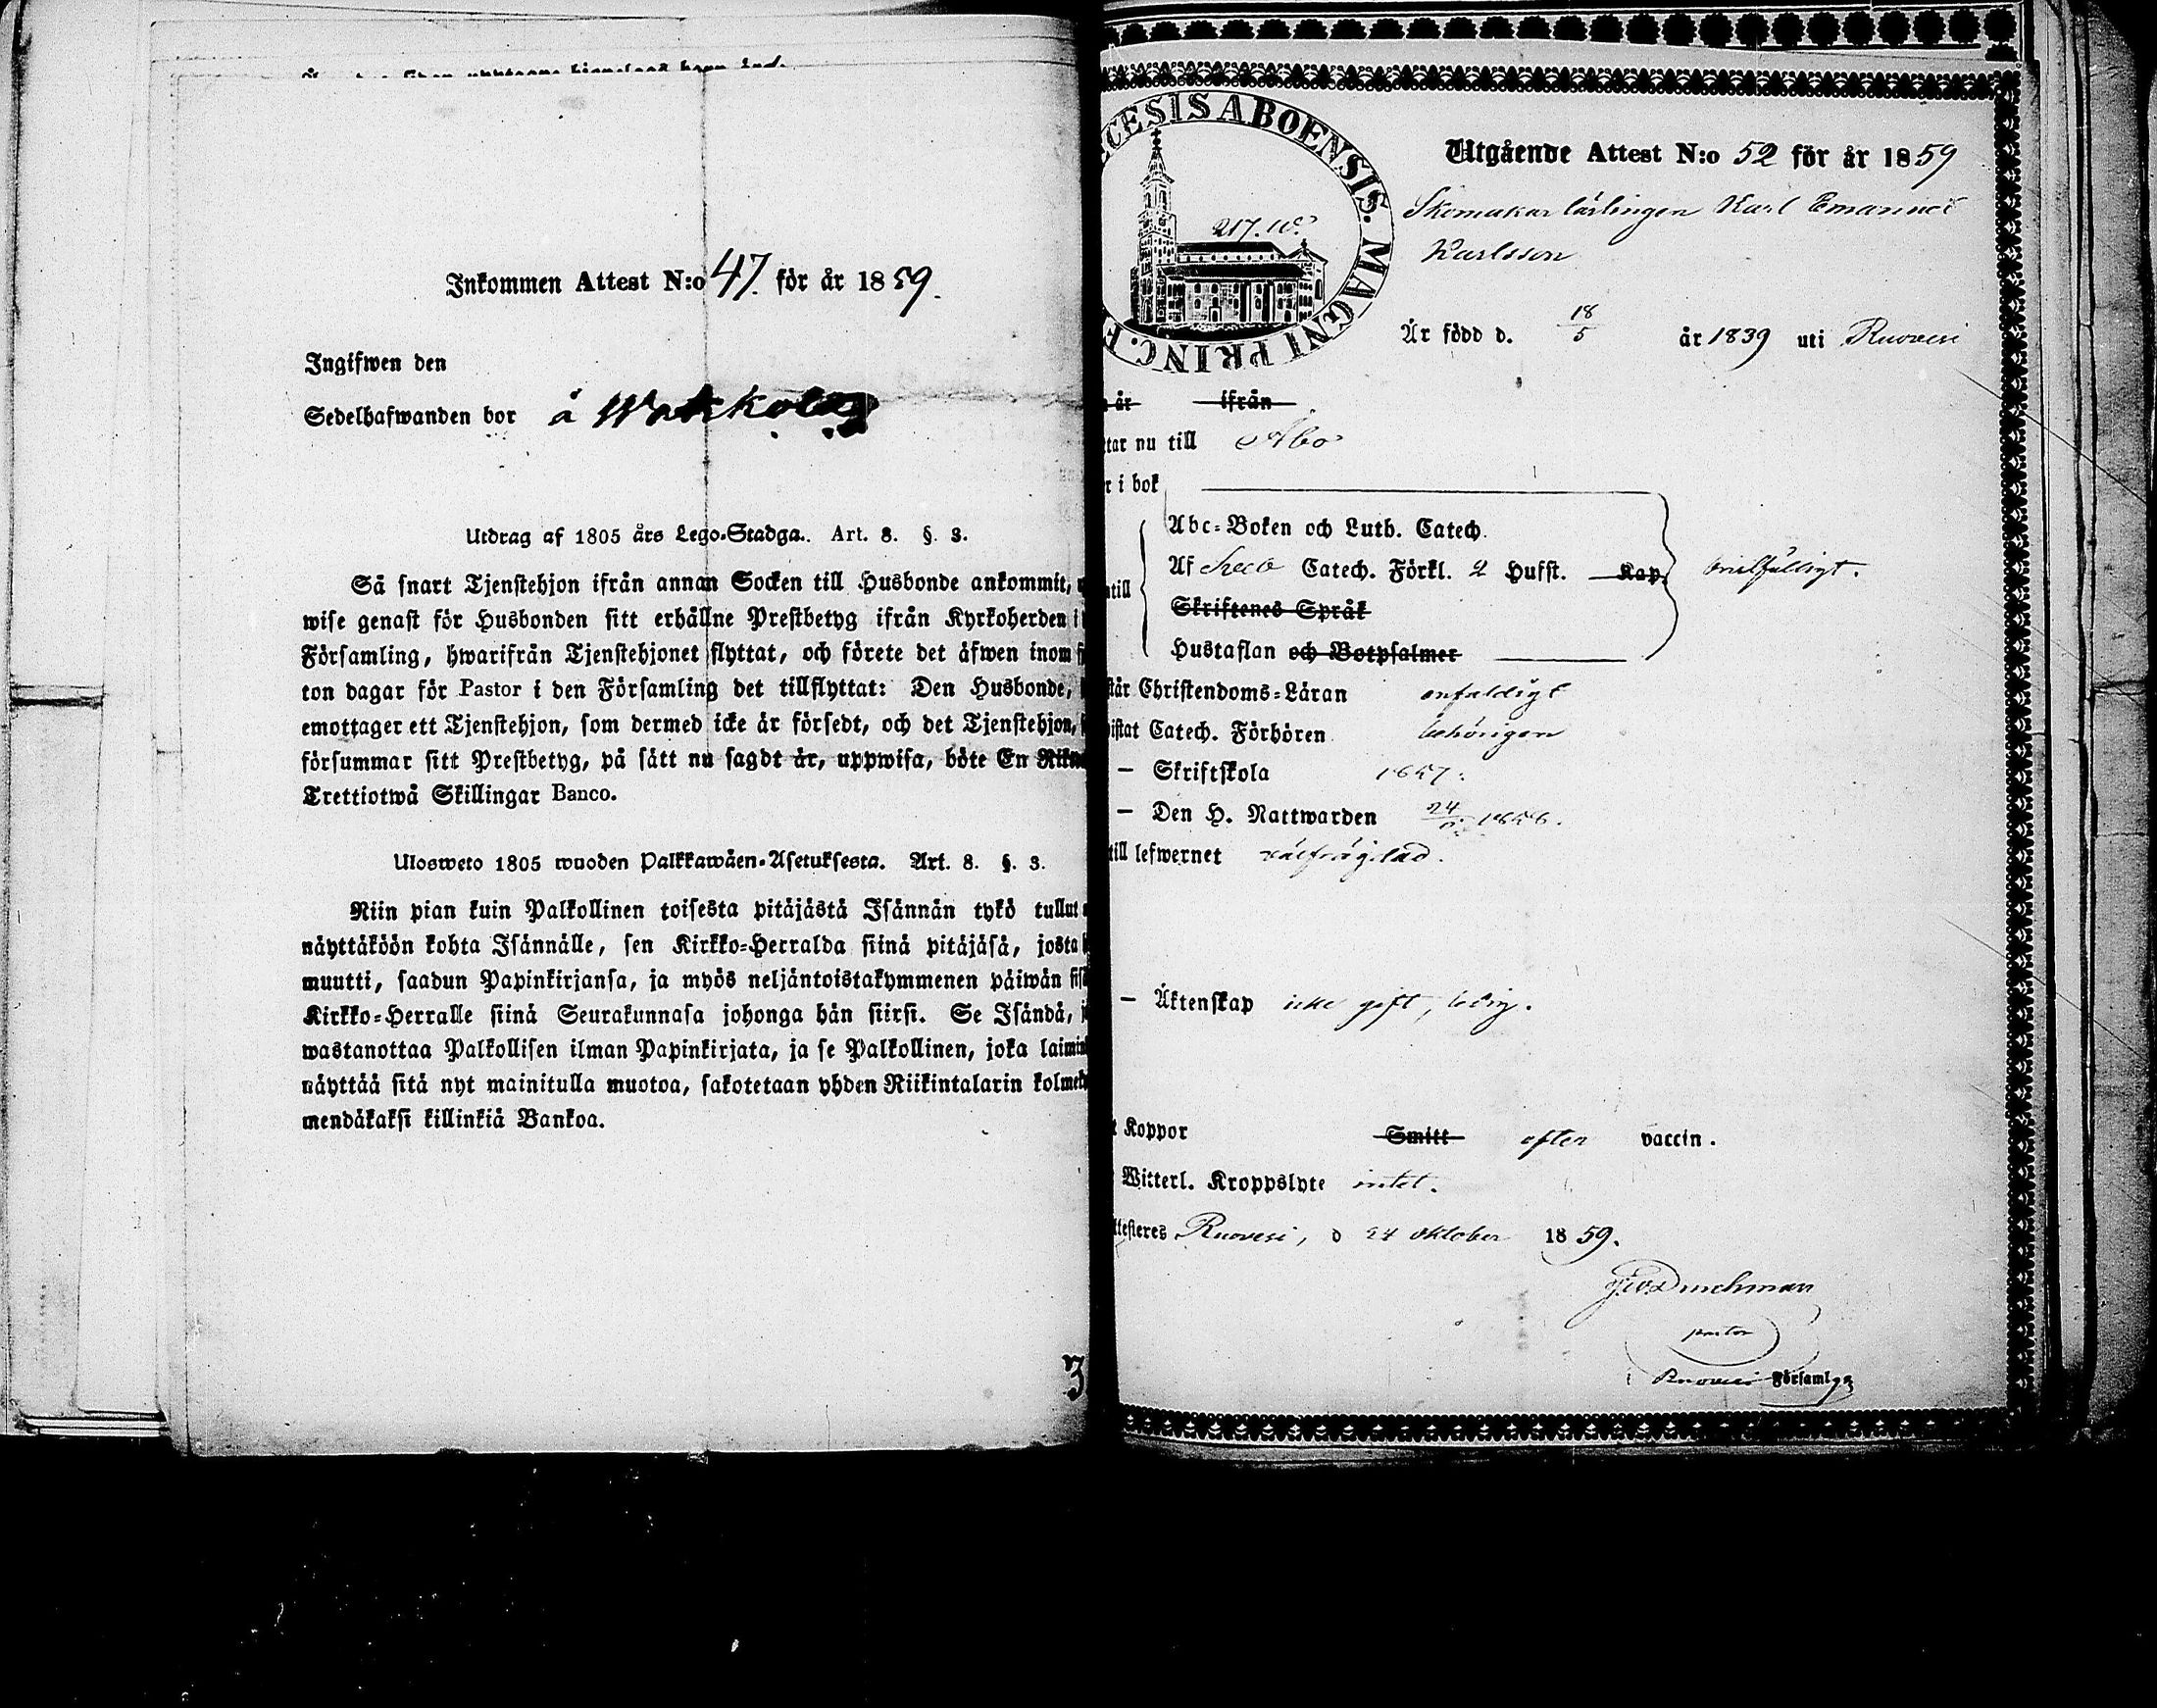 Inkommen Attest N:o 47. för år 1859.
Ingifwen den
Sedelhafwanden bor å
Utdrag af 1805 års Lego-Stadga. Art. 8. §. 3.
Så snart Tjenstehjon ifrån annan Socken till Husbonde ankommit,
wise genast för Husbonden sitt erhållne Prestbetyg ifrån Kyrkoherden i
Församling, hwarifrån Tjenstehjonet flyttat, och förete det äfwen inom
ton dagar för Pastor i den Församling det tillflyttat: Den Husbonde,
emottager ett Tjenstehjon, som dermed icke är försedt, och det Tjenstehjon,
försummar sitt Prestbetyg, på sätt nu sagdt är, uppwisa, böte En
Trettiotwå Skillingar Banco.
Ulosweto 1805 wuoden Palkkawäen-Asetuksesta. Art. 8. §. 3.
Niin pian kuin Palkollinen toisesta pitäjästä Isännän tykö tullut
näyttäköön kohta Isännälle, sen Kirkko-Herralda siinä pitäjäsä, josta
muutti, saadun Papinkirjansa, ja myös neljäntoistakymmenen päiwän
Kirkko-Herralle siinä Seurakunnasa johonga hän siirsi. Se Isändä,
wastanottaa Palkollisen ilman Papinkirjata, ja se Palkollinen, joka
näyttää sitä nyt mainitulla muotoa, sakotetaan yhden Riikintalarin
mendäkaksi killinkiä Bankoa.
3
CESIS ABOENSIS. MAGNI PRINC. F
217. 10.
Utgående Attest N:o 52 för år 1859
Skomakar lärlingen Karl Emanuel
Karlsson
Är född d. 18/5 år 1839 uti Ruovesi
år ifrån
tar nu till Åbo
r i bok
Abc-Boken och Luth. Catech.
Af Catech. Förkl. 2 Hufst. Kap.
till
Skriftenes Språk
Hustaflan och Botpsalmer
står Christendoms-Läran enfaldigt
istat Catech. Förhören behörigen
— Skriftskola 1857.
— Den H. Nattwarden
till lefwernet välfrägdad.
— Äktenskap icke gift, ledig.
Koppor Smitt efter vaccin.
Witterl. Kroppslyte intet.
ttesteres Ruovesi, d 24 oktober 1859.
pastor
i Ruovesi Församlg